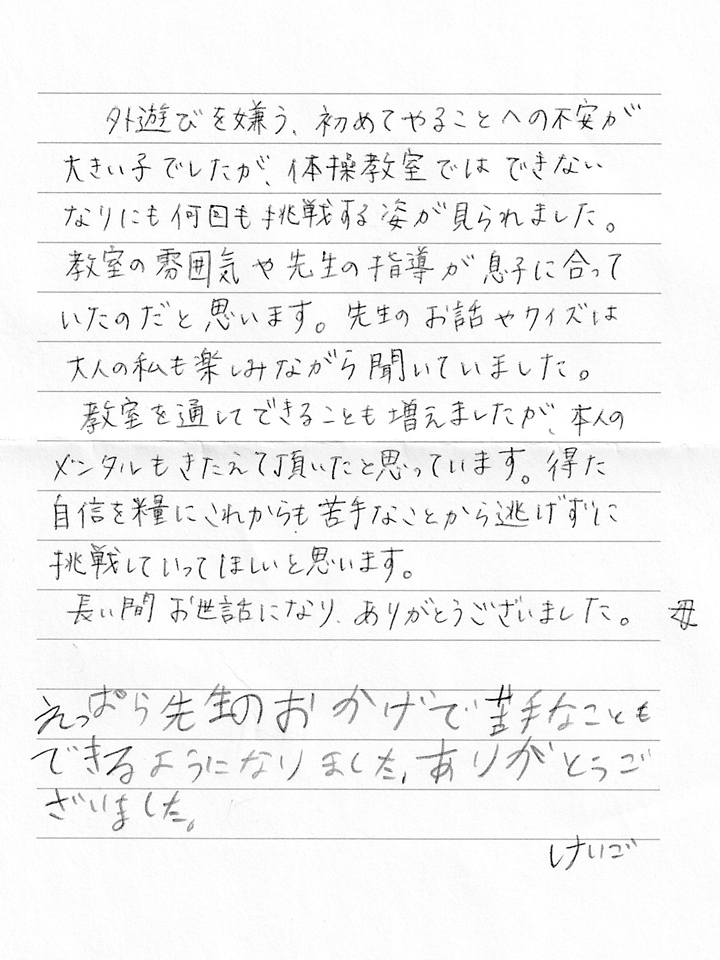 外遊びを嫌う、初めてやることへの不安が
大きい子でしたが、体操教室ではできない
なりにも何回も挑戦する姿が見られました。
教室の雰囲気や先生の指導が息子に合って
いたのだと思います。先生のお話やクイズは
大人の私も楽しみながら聞いていました。
教室を通してできることも増えましたが、本人の
メンタルもきたえて頂いたと思っています。得た
自信を糧にこれからも苦手なことから逃げずに
挑戦していってほしいと思います。
長い間お世話になり、ありがとうございました。 母
えっぱら先生のおかげで苦手なことも
できるようになりました。ありがとうご
ざいました。
けいご